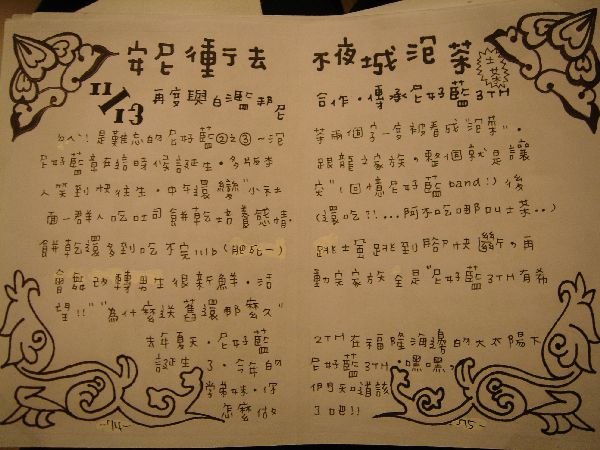 安尼衝行去 不夜城泡茶
土茶
11/13 再度與白濫邦尼 合作,傳承尼好藍3TH
!!是難忘的尼好藍②之③~泡 茶兩個字一度被看成"泡菜"。
尼好藍章在這時候誕生,多版本 跟龍之家族,整個就是讓
人笑到快往生,中午還變"小天土 突"(回憶尼好藍band!)後
面一群人吃吐司餅乾培養感情, (還吃?!...阿不吃哪ㄐㄩ土茶..)
餅乾還多到吃不完lllb(肥死一) 跳土風跳到腳快斷,再
會舞改轉男生很新鮮,活 動完家族全是"尼好藍3TH有希
望!!""為什麼送舊還那麼久"
去年夏天,尼好藍 2TH在福隆海邊的大太陽下
誕生了,今年的 尼好藍3TH,嘿嘿。
學弟妹,你 們知道該
怎麼做 了吧!!
~74~ ~75~